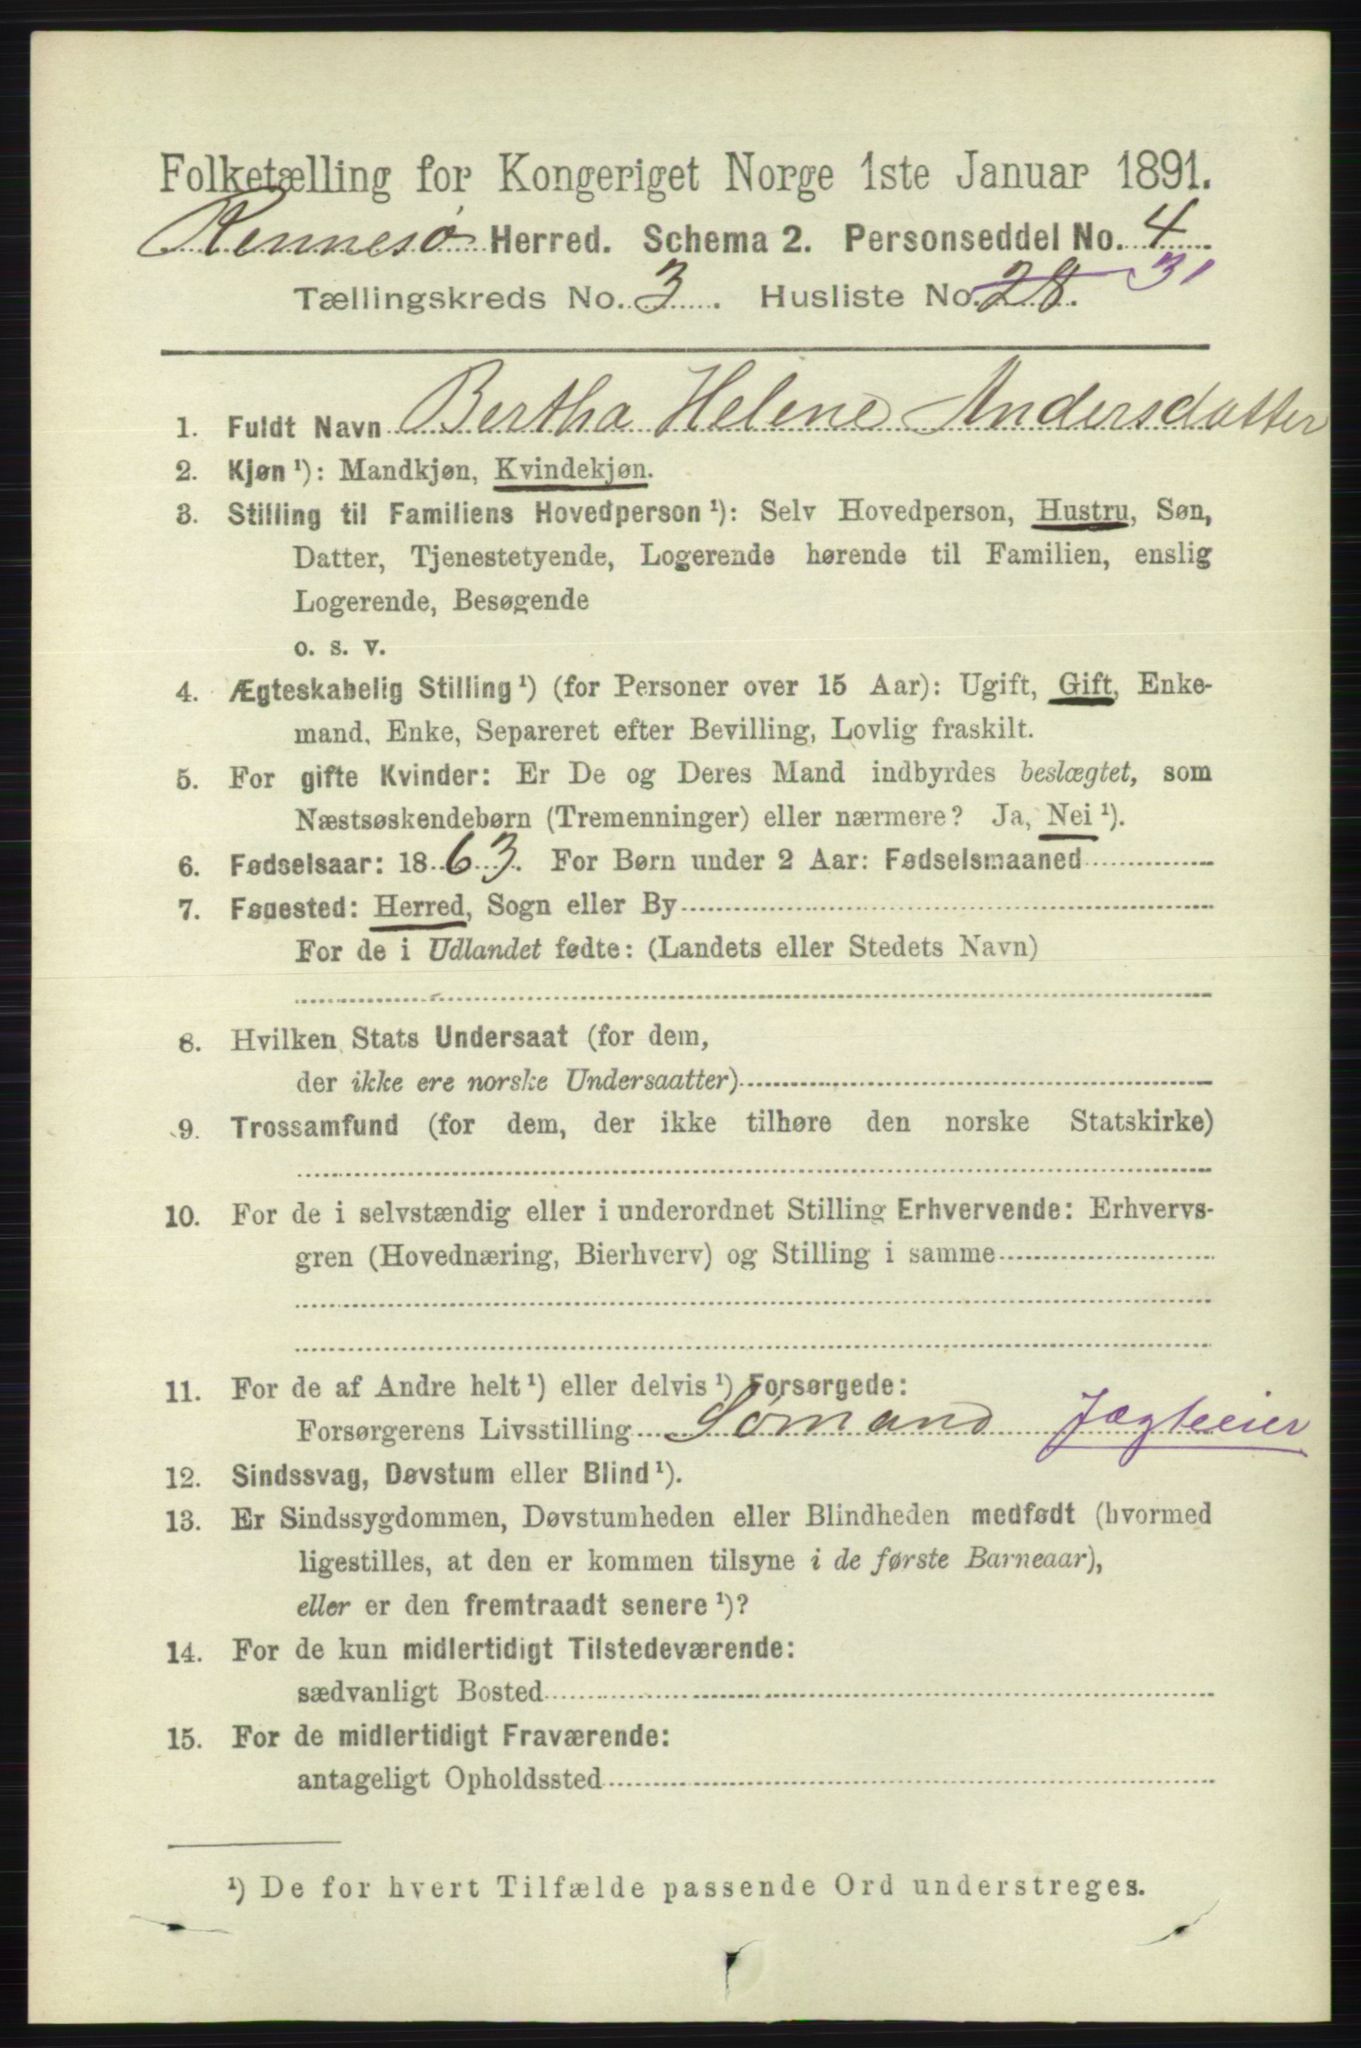 Folketælling for Kongeriget Norge 1ste Januar 1891.
Rennesø Herred. Schema 2. Personseddel No. 4
Tællingskreds No. 3. Husliste No. 28. 31
1. Fuldt Navn Bertha Helene Andersdatter
2. Kjøn ¹): Mandkjøn, Kvindekjøn.
3. Stilling til Familiens Hovedperson ¹): Selv Hovedperson, Hustru, Søn,
Datter, Tjenestetyende, Logerende hørende til Familien, enslig
Logerende, Besøgende
o. s. v.
4. Ægteskabelig Stilling ¹) (for Personer over 15 Aar): Ugift, Gift, Enke-
mand, Enke, Separeret efter Bevilling, Lovlig fraskilt.
5. For gifte Kvinder: Er De og Deres Mand indbyrdes beslægtet, som
Næstsøskendebørn (Tremenninger) eller nærmere? Ja, Nei ¹).
6. Fødselsaar: 1863. For Børn under 2 Aar: Fødselsmaaned
7. Fødested: Herred, Sogn eller By
For de i Udlandet fødte: (Landets eller Stedets Navn)
8. Hvilken Stats Undersaat (for dem,
der ikke ere norske Undersaatter)
9. Trossamfund (for dem, der ikke tilhøre den norske Statskirke)
10. For de i selvstændig eller i underordnet Stilling Erhvervende: Erhvervs-
gren (Hovednæring, Bierhverv) og Stilling i samme
11. For de af Andre helt ¹) eller delvis ¹) Forsørgede:
Forsørgerens Livsstilling Sømand Jægteeier
12. Sindssvag, Døvstum eller Blind ¹).
13. Er Sindssygdommen, Døvstumheden eller Blindheden medfødt (hvormed
ligestilles, at den er kommen tilsyne i de første Barneaar),
eller er den fremtraadt senere ¹)?
14. For de kun midlertidigt Tilstedeværende:
sædvanligt Bosted
15. For de midlertidigt Fraværende:
antageligt Opholdssted
¹) De for hvert Tilfælde passende Ord understreges.